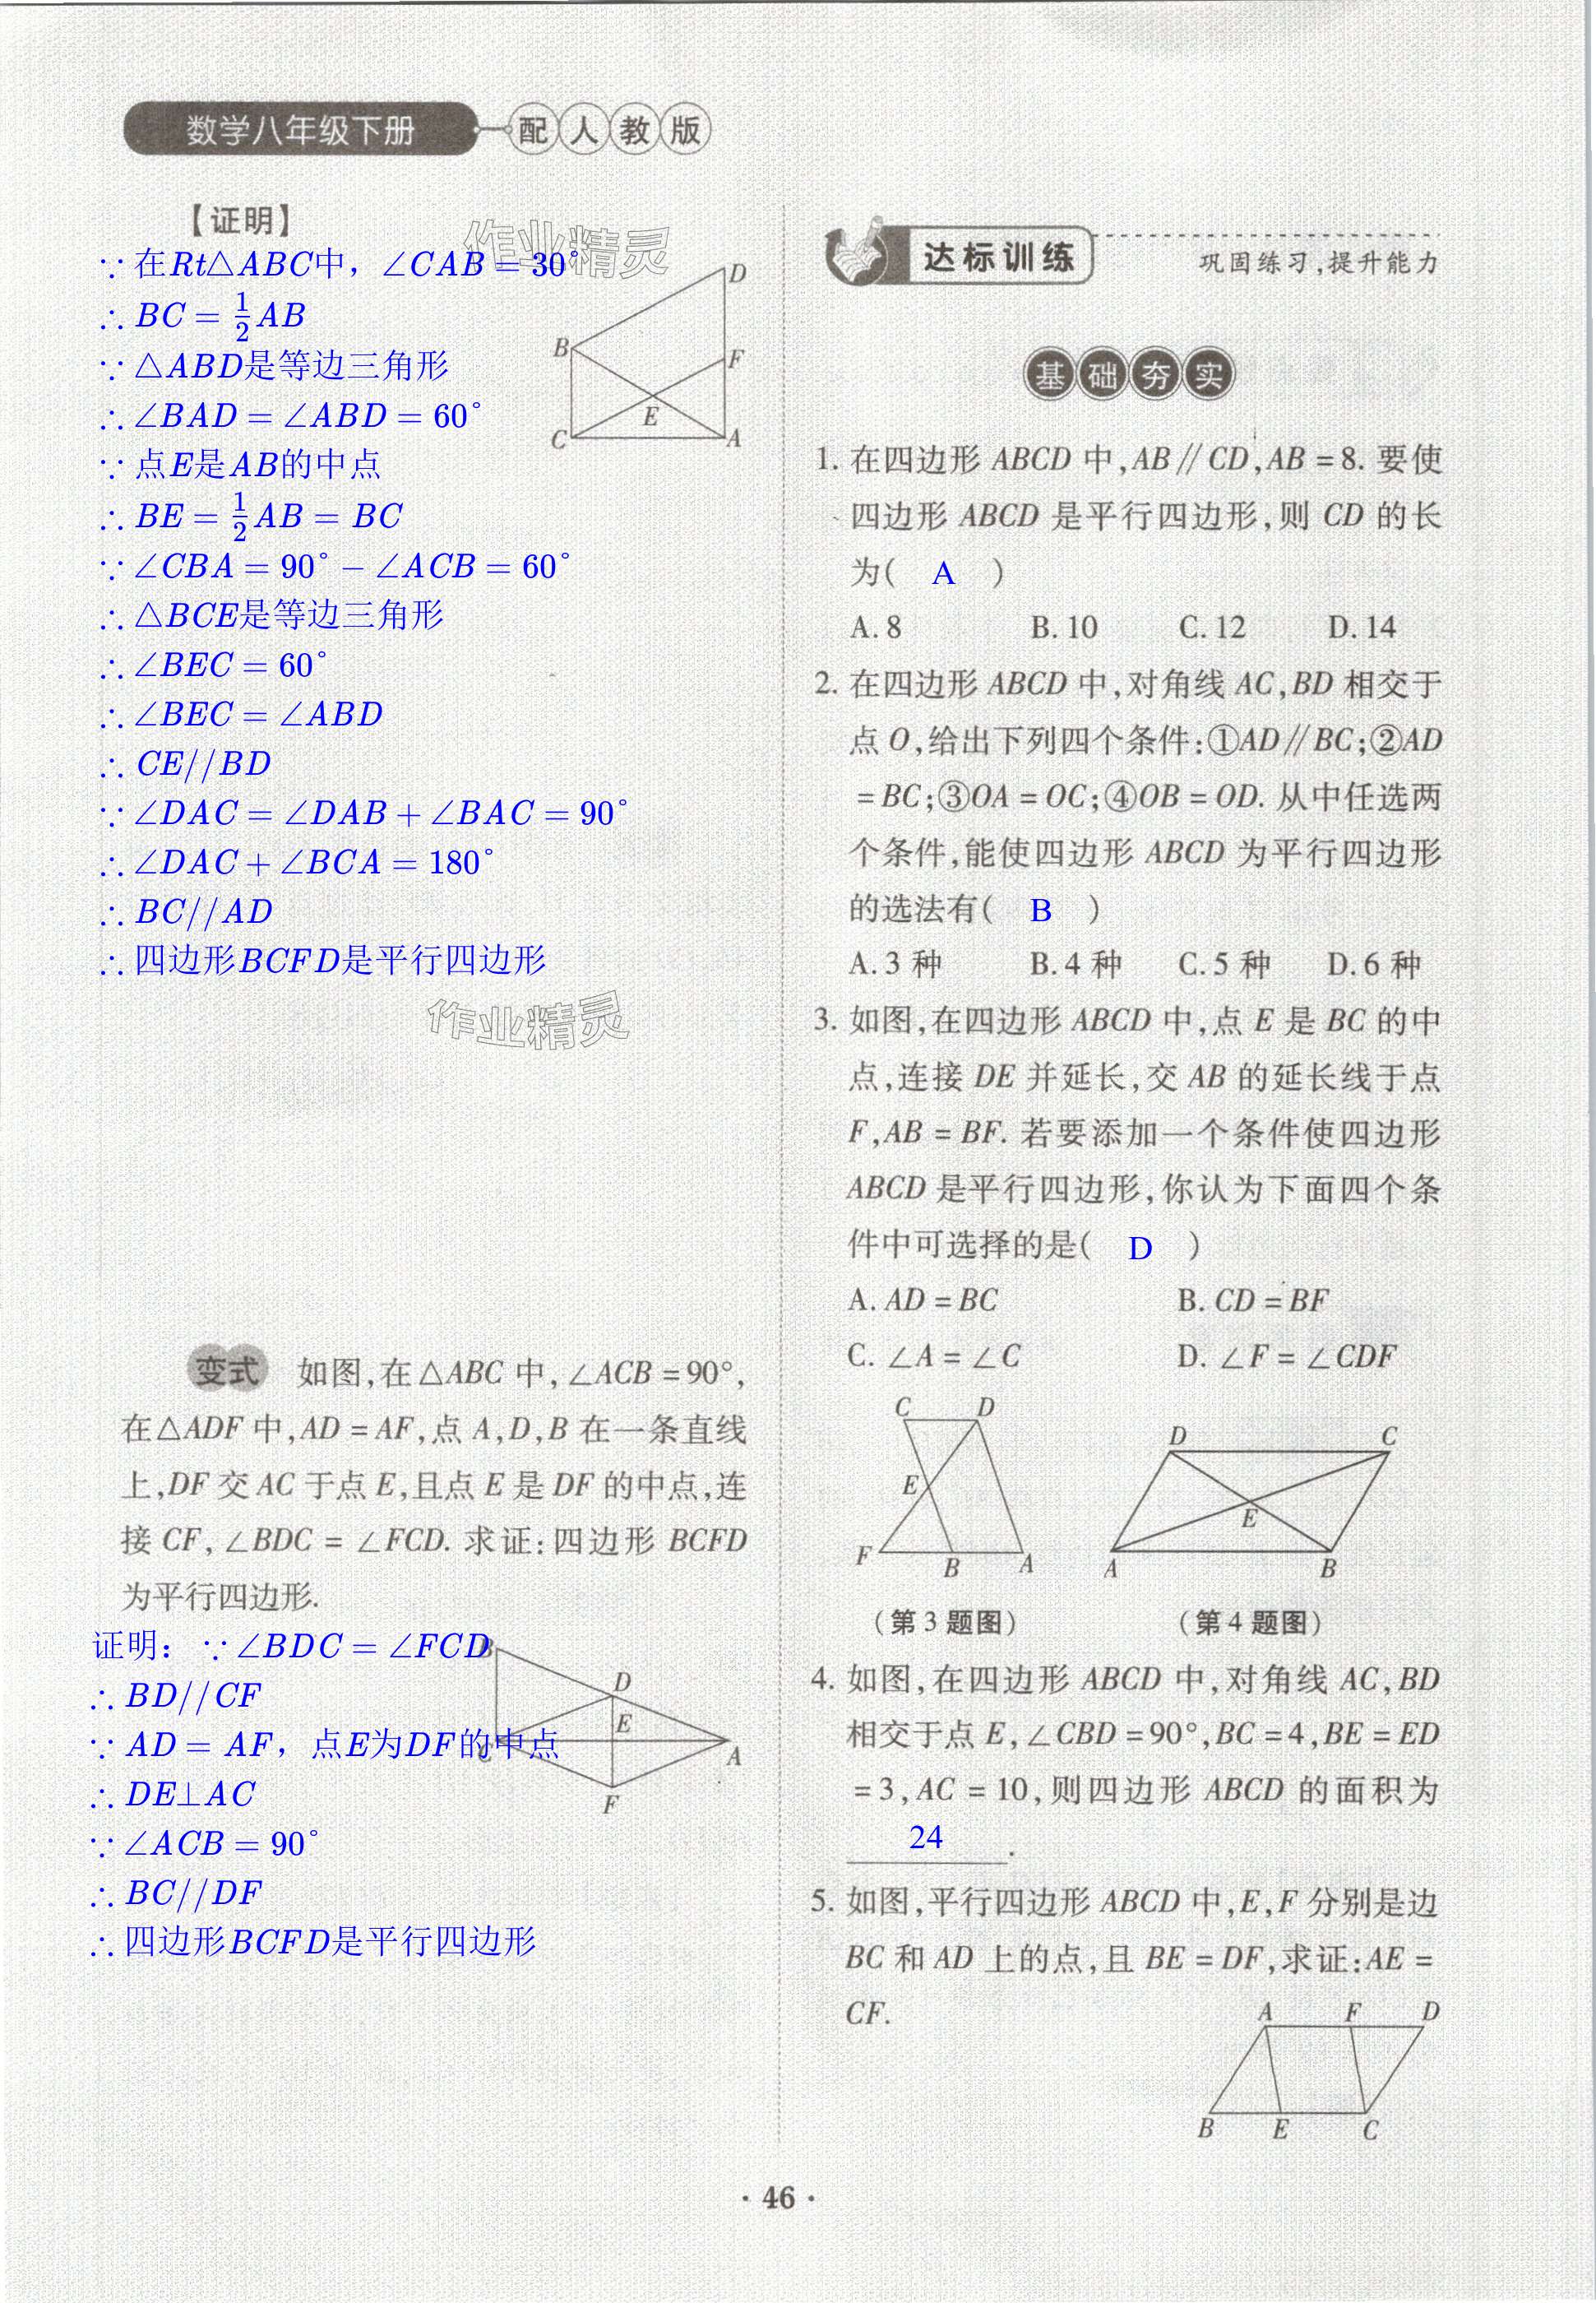 数学八年级下册 配人教版
【证明】
∵在Rt△ABC中，∠CAB=30°
∴BC=1/2AB
∵△ABD是等边三角形
∴∠BAD=∠ABD=60°
∵点E是AB的中点
∴BE=1/2AB=BC
∵∠CBA=90°−∠ACB=60°
∴△BCE是等边三角形
∴∠BEC=60°
∴∠BEC=∠ABD
∴CE//BD
∵∠DAC=∠DAB+∠BAC=90°
∴∠DAC+∠BCA=180°
∴BC//AD
∴四边形BCFD是平行四边形
作业精灵
D
B
F
E
C
A
作业精灵
变式 如图,在△ABC中,∠ACB=90°,
在△ADF中,AD=AF,点A,D,B在一条直线
上,DF交AC于点E,且点E是DF的中点,连
接CF,∠BDC=∠FCD.求证:四边形BCFD
为平行四边形.
证明：∵∠BDC=∠FCD
∴BD//CF
∵AD=AF，点E为DF的中点
∴DE⊥AC
∵∠ACB=90°
∴BC//DF
∴四边形BCFD是平行四边形
B
D
E
C
A
F
达标训练 巩固练习,提升能力
基础夯实
1.在四边形ABCD中,AB∥CD,AB=8.要使
四边形ABCD是平行四边形,则CD的长
为( A )
A.8 B.10 C.12 D.14
2.在四边形ABCD中,对角线AC,BD相交于
点O,给出下列四个条件:①AD∥BC;②AD
=BC;③OA=OC;④OB=OD.从中任选两
个条件,能使四边形ABCD为平行四边形
的选法有( B )
A.3种 B.4种 C.5种 D.6种
3.如图,在四边形ABCD中,点E是BC的中
点,连接DE并延长,交AB的延长线于点
F,AB=BF.若要添加一个条件使四边形
ABCD是平行四边形,你认为下面四个条
件中可选择的是( D )
A.AD=BC B.CD=BF
C.∠A=∠C D.∠F=∠CDF
C D
E
F B A
D C
E
A B
(第3题图) (第4题图)
4.如图,在四边形ABCD中,对角线AC,BD
相交于点E,∠CBD=90°,BC=4,BE=ED
=3,AC=10,则四边形ABCD的面积为
24.
5.如图,平行四边形ABCD中,E,F分别是边
BC和AD上的点,且BE=DF,求证:AE=
CF.
A F D
B E C
·46·